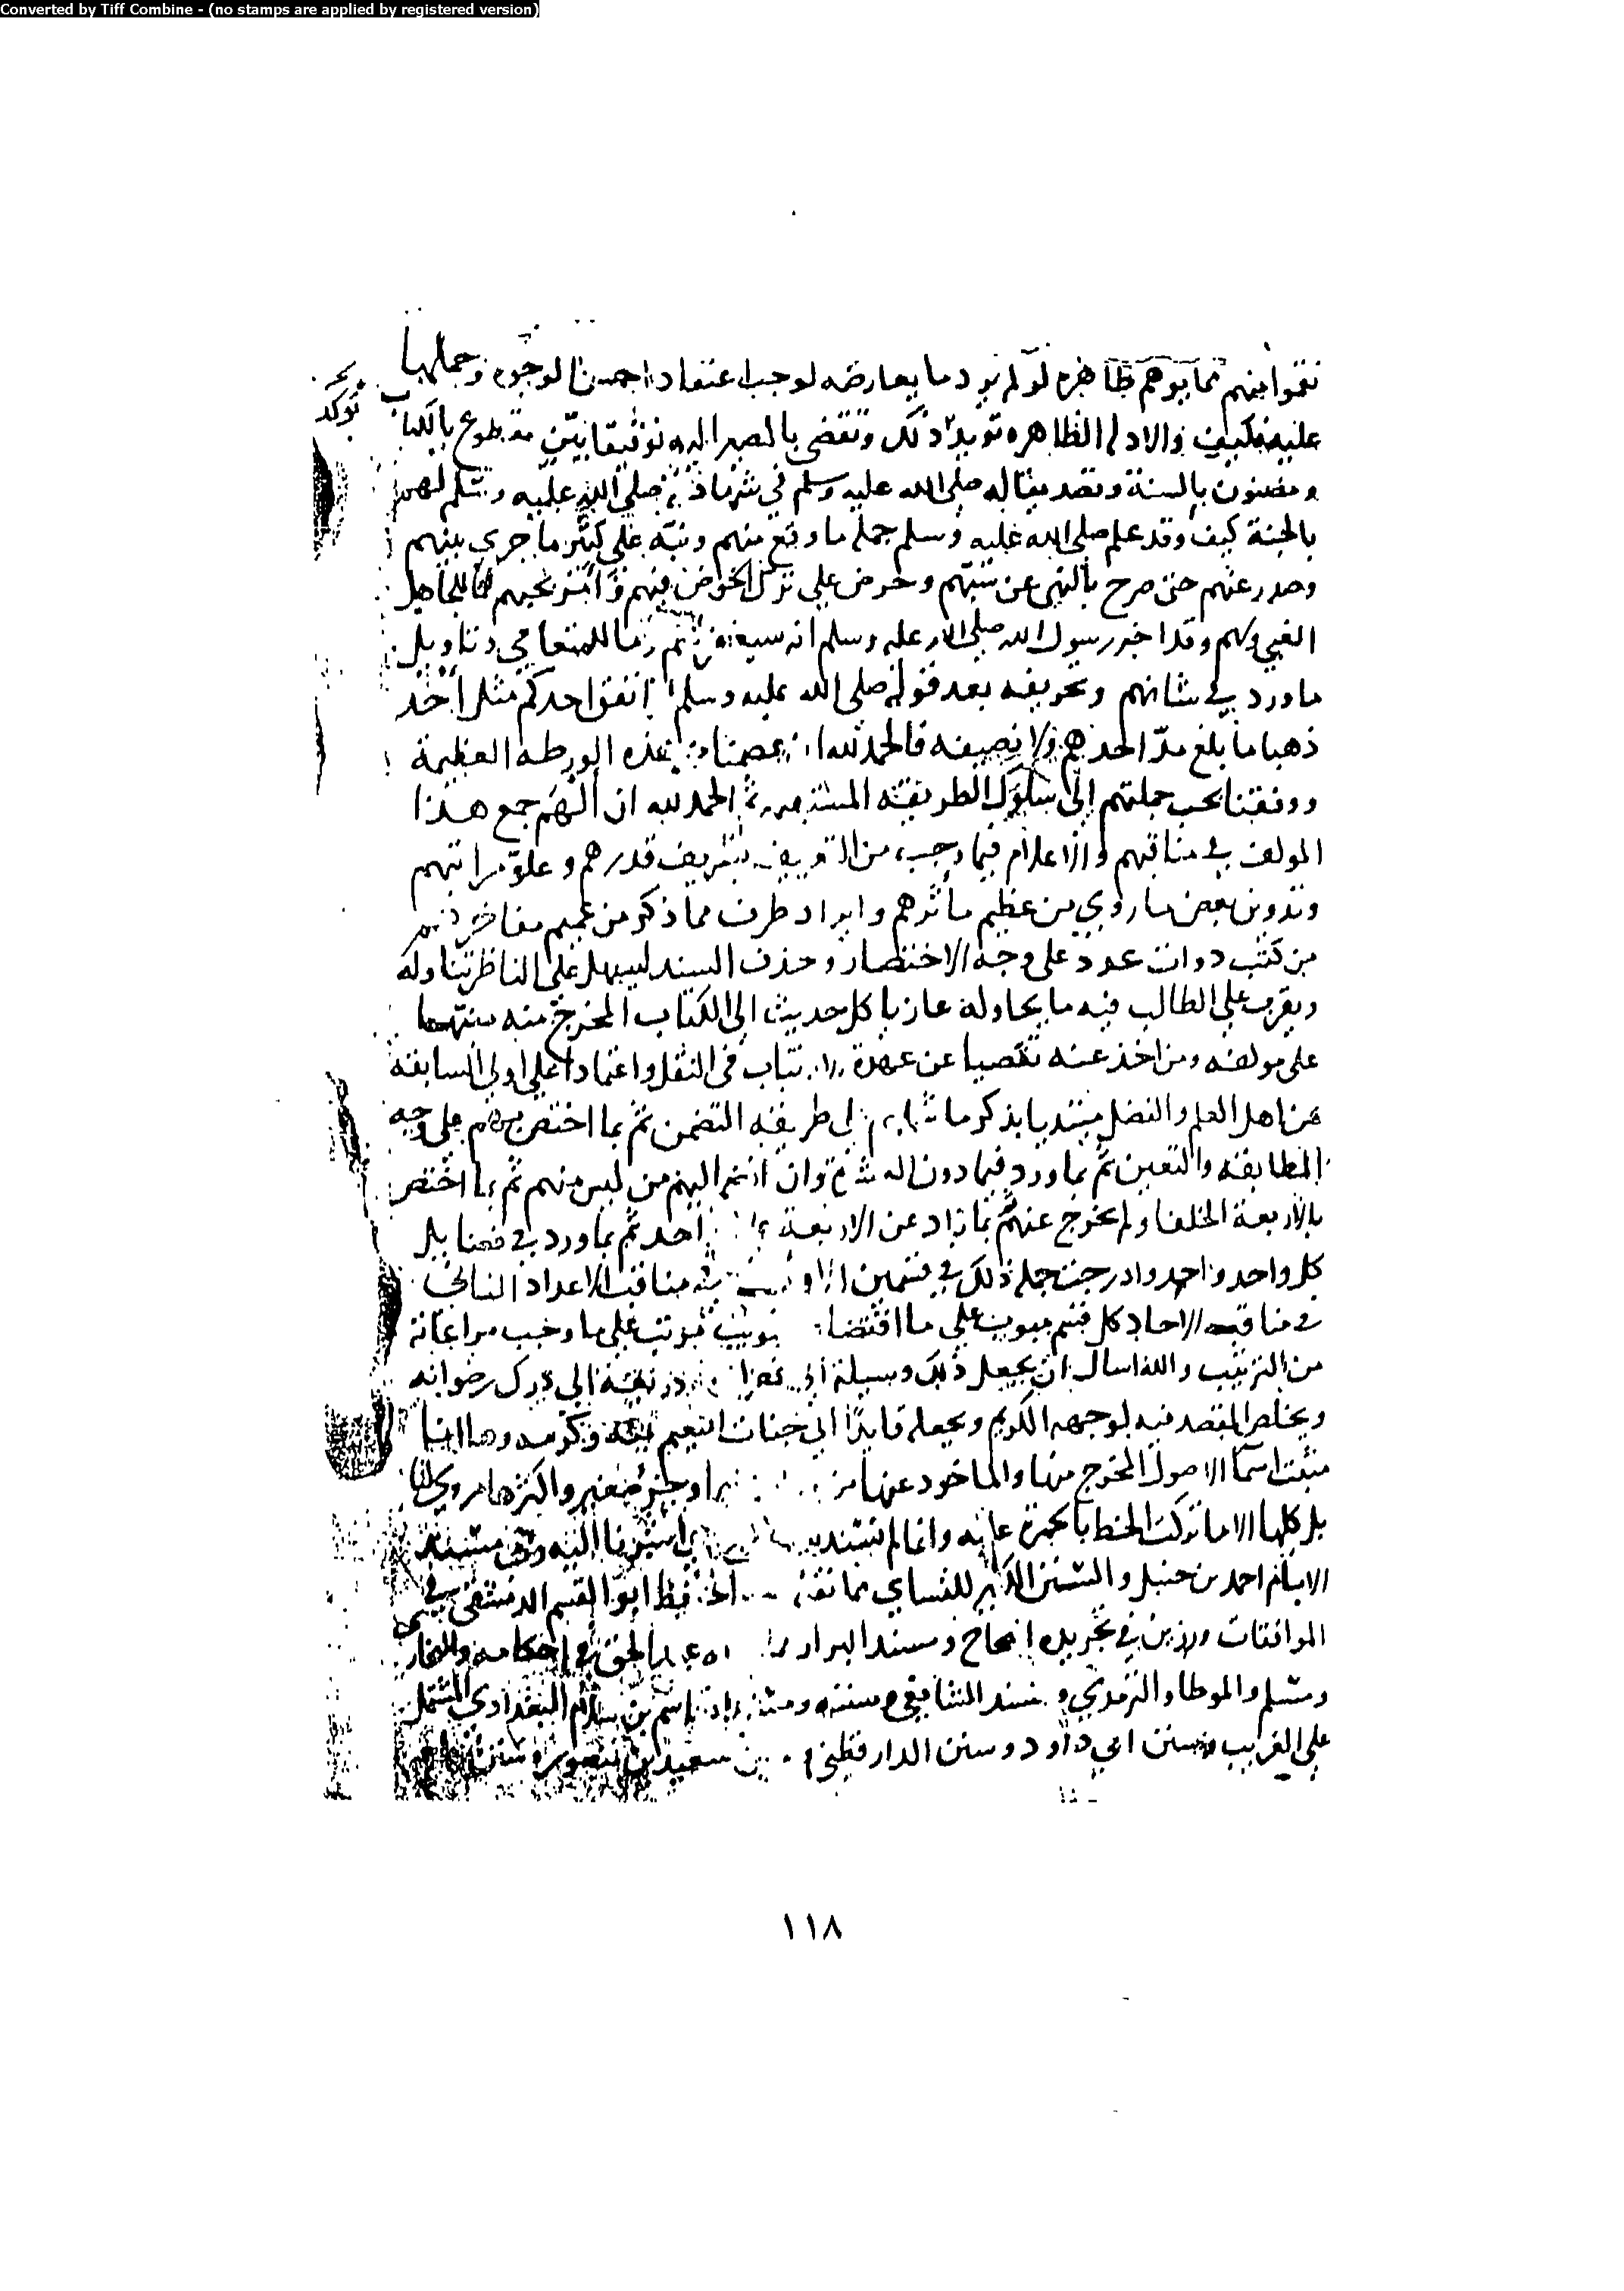 Converted by Tiff Combine - (no stamps are applied by registered version)
نقموا منهم مما يوهم ظاهره لو لم يرد ما يعارضه لوجب اعتقاد احسن الوجوه وحملها
تؤكد
عليه فكيف والادلة الظاهره تؤيد ذلك وتقضي بالمصير اليه توثيقا بيّن مقطوع بالكتاب
ومضنون بالسنة وتصديقا له صلى الله عليه وسلم في شهادته صلى الله عليه وسلم لهم
بالجنة كيف وقد علم صلى الله عليه وسلم جملة ما وقع منهم ونبّه على كثير ما جري بينهم
وصدر عنهم حتى صرح بالنهي عن سبّهم وحرض على ترك الخوض فيهم وأمر بحبهم فما للجاهل
الغبي ولهم وقد اخبر رسول الله صلى الله عليه وسلم انه سيغفر لهم وما للمتعامي وتاويل
ما ورد في شانهم وتحريفه بعد قوله صلى الله عليه وسلم لو انفق احدكم مثل أحد
ذهبا ما بلغ مدّ احدهم ولا نصيفه فالحمد لله ان عصمنا من هذه الورطه العظيمة
ووفقنا بحب جملتهم إلى سلوك الطريقة المستقيمة ثم الحمد لله ان ألهم جمع هذا
المولف في مناقبهم والاعلام فيما وجب من التعريف بشريف قدرهم وعلوّ مراتبهم
وتدوين بعض ما روي من عظيم مأثرهم وايراد طرف مما ذكر من عميم مفاخرهم
من كتب ذوات عدد على وجه الاختصار وحذف السند ليسهل على الناظر تناوله
ويقرب على الطالب فيه ما يحاوله عازيا كل حديث الى الكتاب المخرج منه منبّها
على مولفه ومن اخذ عنه تفصيا عن عهدة الارتياب في النقل واعتمادا على اولي السابقة
من اهل العلم والفضل مبتديا بذكر ما على طريقة التضمن ثم بما اختص بهم على وجه
المطابقة والتعين ثم بما ورد فيما دون العشرة وان انضم اليهم من ليس منهم ثم بما اختص
بالأربعة الخلفا ولم يخرج عنهم ثم بما زاد عن الاربعة احد ثم بما ورد في فضايل
كل واحد واحد وادرجت جملة ذلك في قسمين الاول في مناقب الاعداد الثاني
في مناقب الاحاد كل قسم مبوب على ما اقتضاه تبويب مرتب على ما وجب مراعاته
من الترتيب والله اسال ان يجعل ذلك وسيلة الى غفرانه وذريعة الى درك رضوانه
ويخلص المقصد فيه لوجهه الكريم ويجعله قايدًا الى جنات النعيم بمنّه وكرمه وها انا
مثبت اسما الاصول المخرج منها والماخوذ عنها من وجزء صغير واكثرها مروي لنا
بل كلها الا ما تركت الخط بالحمرة عليه وانما لم نسند اشرنا اليه وهي مسند
الامام احمد بن حنبل والسنن الكبير للنساي مما نقله الحافظ ابو القسم الدمشقي في
الموافقات ورزين في تجريده الصحاح ومسند البزار عبد الحق في احكامه والبخاري
ومسلم والموطا والترمذي ومسند الشافعي وسننه ومسند القاسم بن سلام البغدادي المشتمل
على الغريب وسنن ابي داود وسنن الدارقطني وسنن سعيد بن منصور وسنن
١١٨